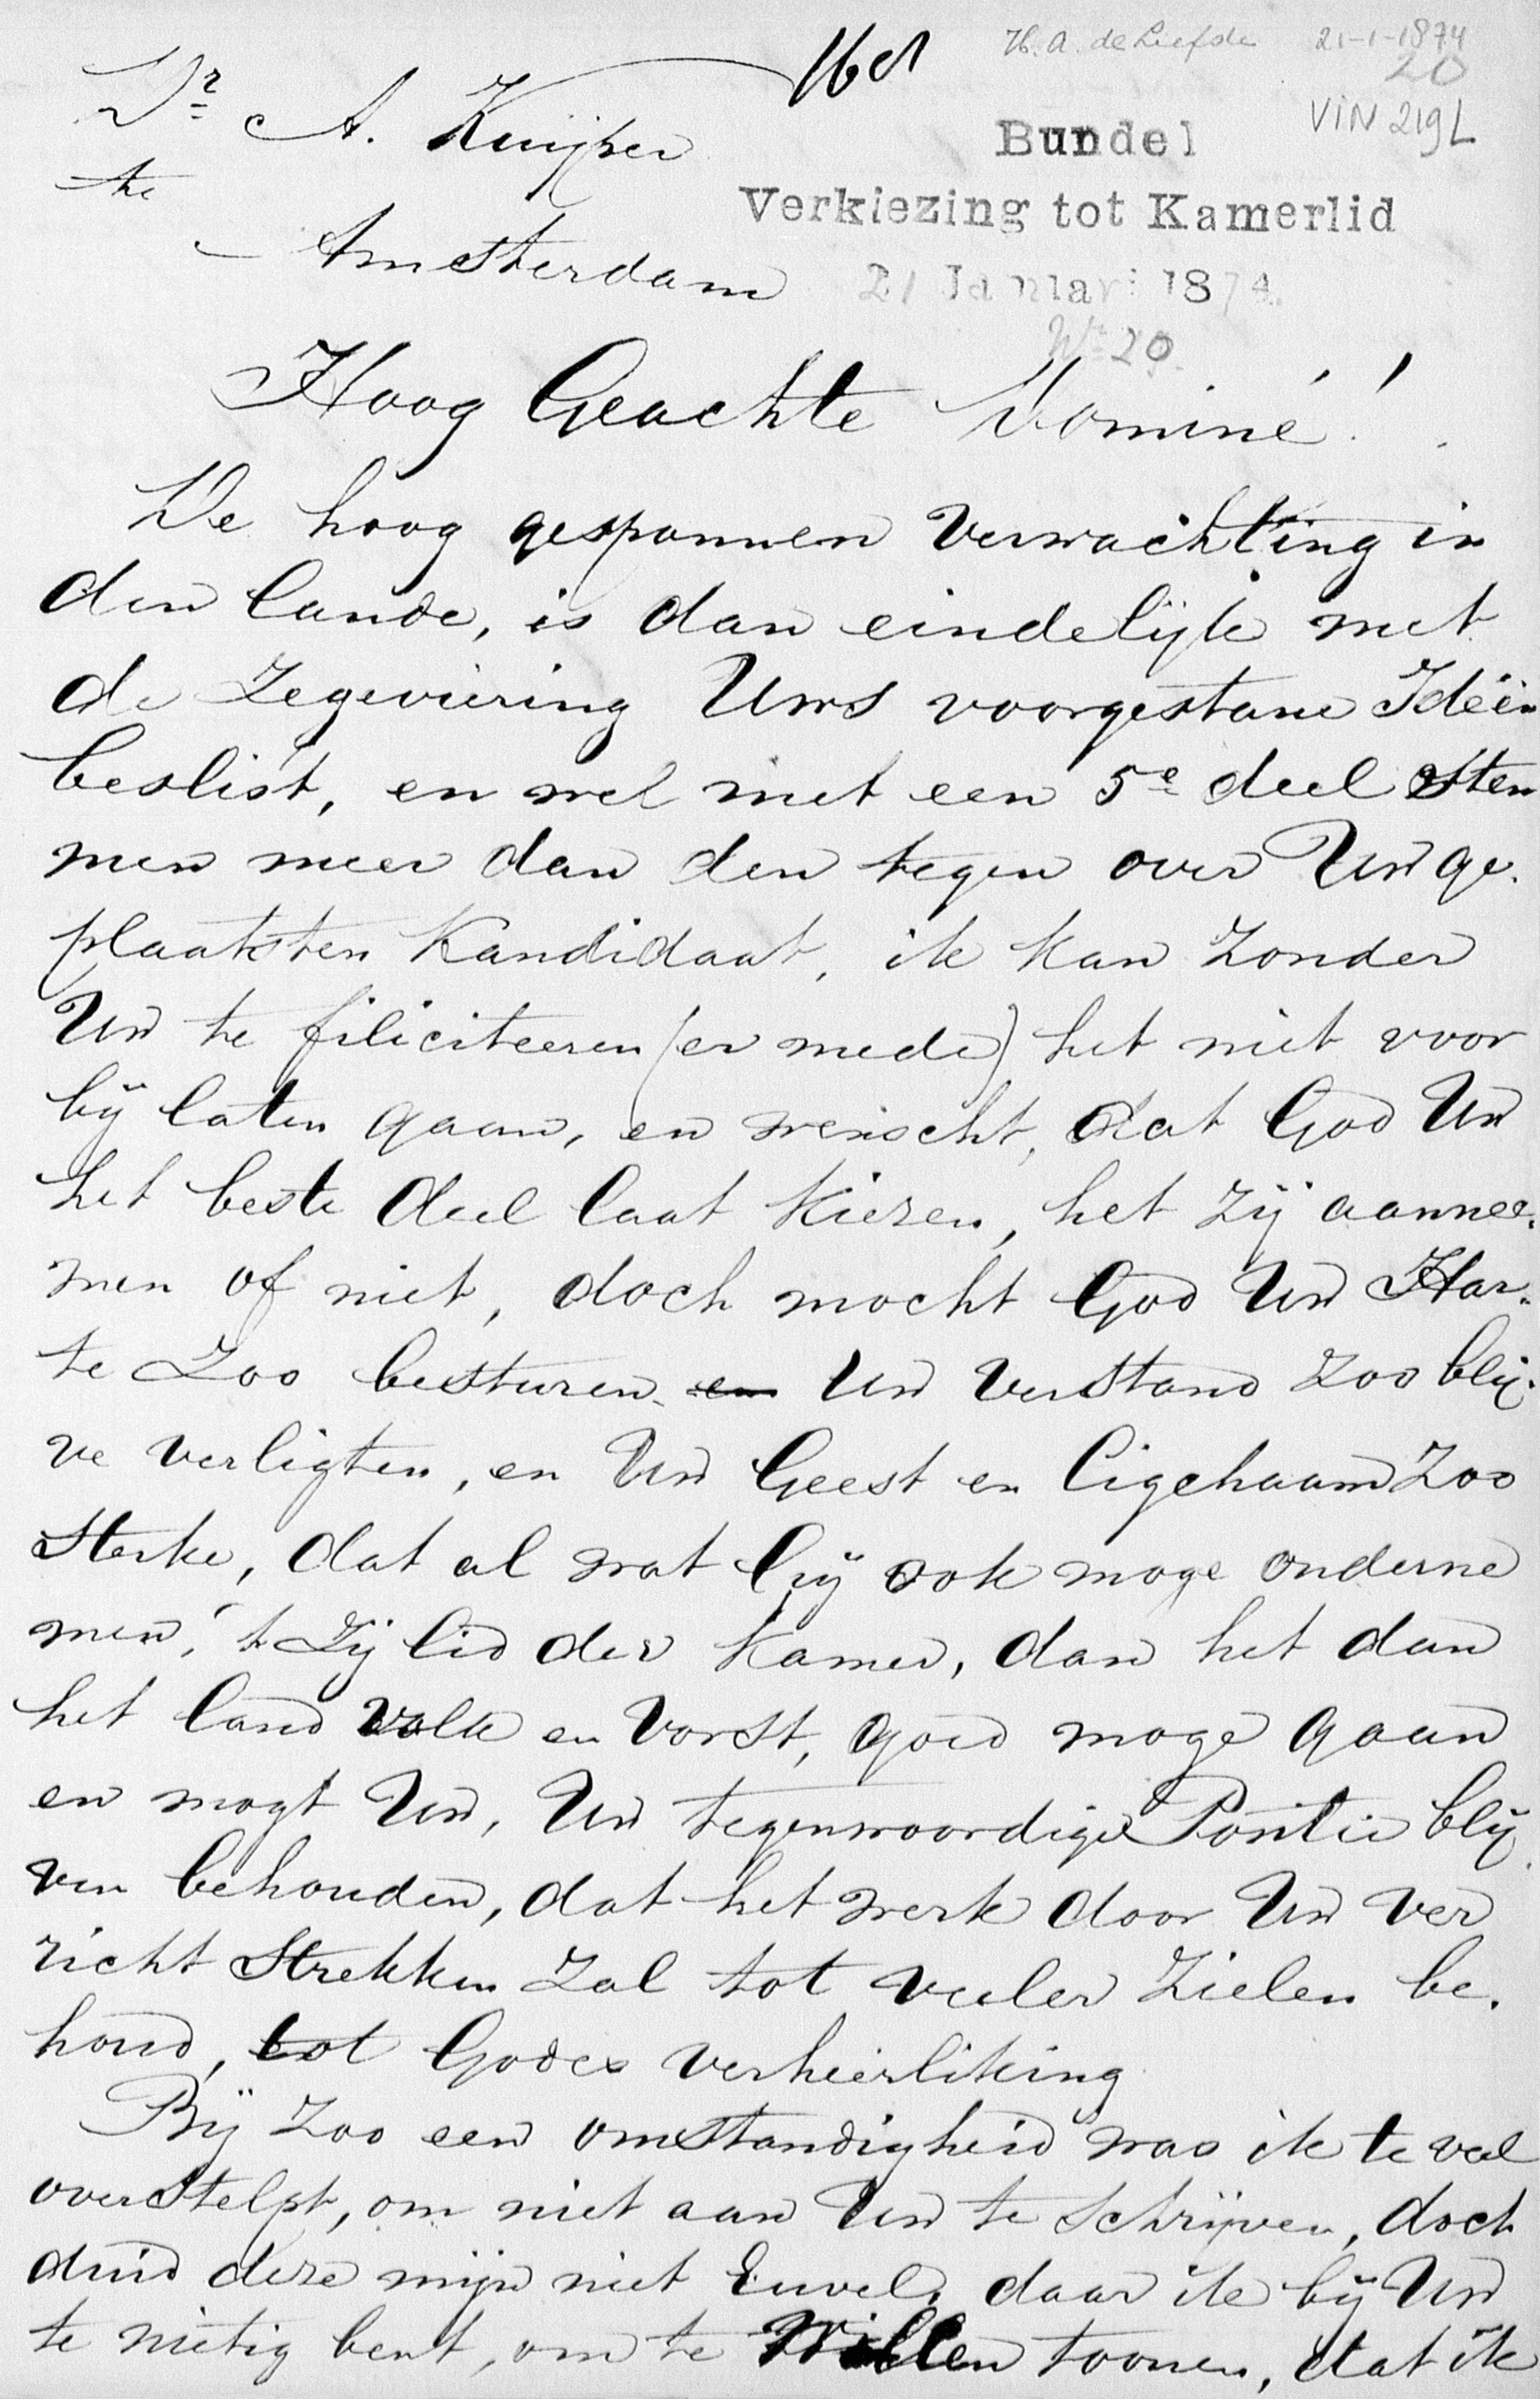 H. A. de Liefde 21-1-1874
20
VIN 219L
Dr A. Kuijper
te
Amsterdam
Bundel
Verkiezing tot Kamerlid
21 Januari 1874.
No 20.
Hoog Geachte Dominé!
De hoog gespannen verwachting in
den lande, is dan eindelijk met
de Zegeviering Uws voorgestane Ideën
beslist, en wel met een 5e deel Stem
men meer dan den tegen over Uw ge-
plaatsten Kandidaat, ik kan zonder
Uw te filiciteeren (er mede) het niet voor
bij laten gaan, en wenscht, dat God Uw
het beste deel laat kiezen, het zij aannee-
men of niet, doch mocht God Uw Har-
te Zoo besturen en Uw verstand Zoo blij-
ve verligten, en Uw Geest en Ligchaam Zoo
Sterke, dat al wat Gij ook moge onderne
men, 't Zij Lid der Kamer, dan het dan
het land Volk en Vorst, goed moge gaan
en mogt Uw, Uw tegenwoordige Positie blij
ven behouden, dat het werk door Uw ver
richt Strekken Zal tot veeler Zielen be-
houd, tot Godes verheerliking
Bij Zoo een omstandigheid was ik te veel
overstelpt, om niet aan Uw te schrijven, doch
duid deze mijn niet Euvel, daar ik bij Uw
te nietig bent, om te Willen toonen, dat ik